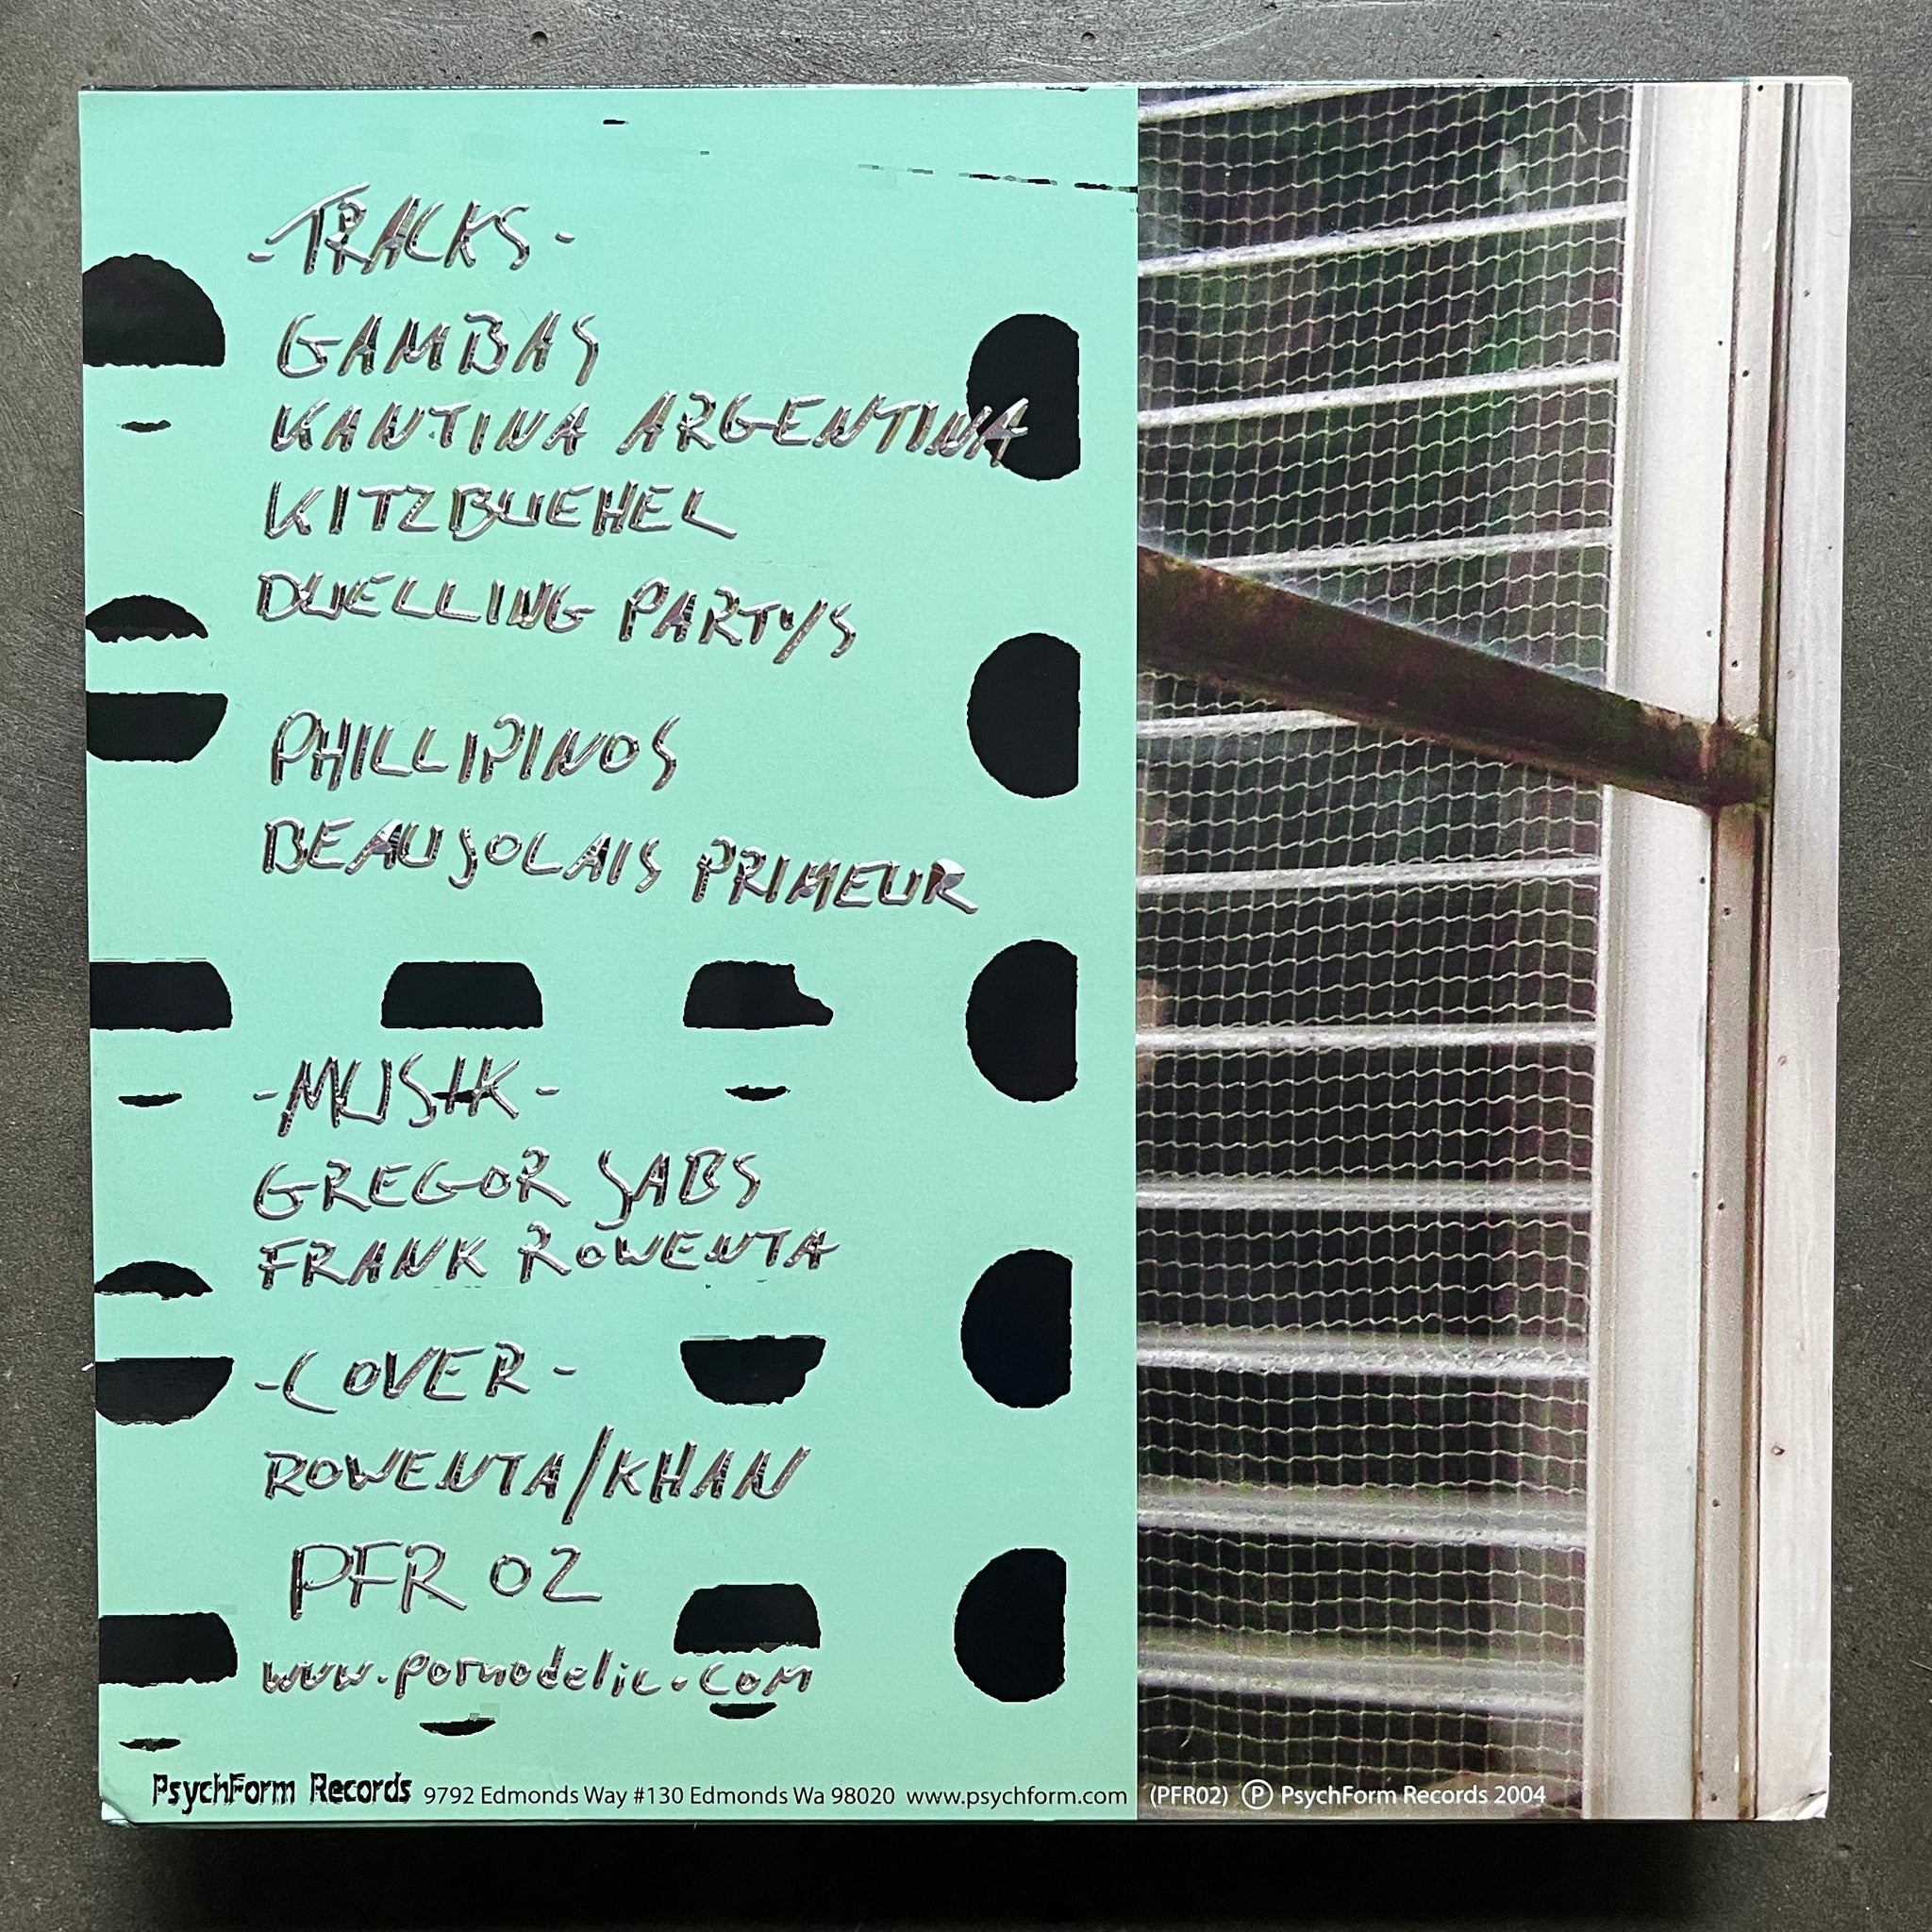 -TRACKS-
GAMBAS
KANTINA ARGENTINA
KITZBUEHEL
DUELLING PARTYS
PHILLIPINOS
BEAUJOLAIS PRIMEUR
-MUSIK-
GREGOR JABS
FRANK ROWENTA
-COVER-
ROWENTA/KHAN
PFR 02
www.pornodelic.com
PsychForm Records 9792 Edmonds Way #130 Edmonds Wa 98020 www.psychform.com (PFR02) Ⓟ PsychForm Records 2004